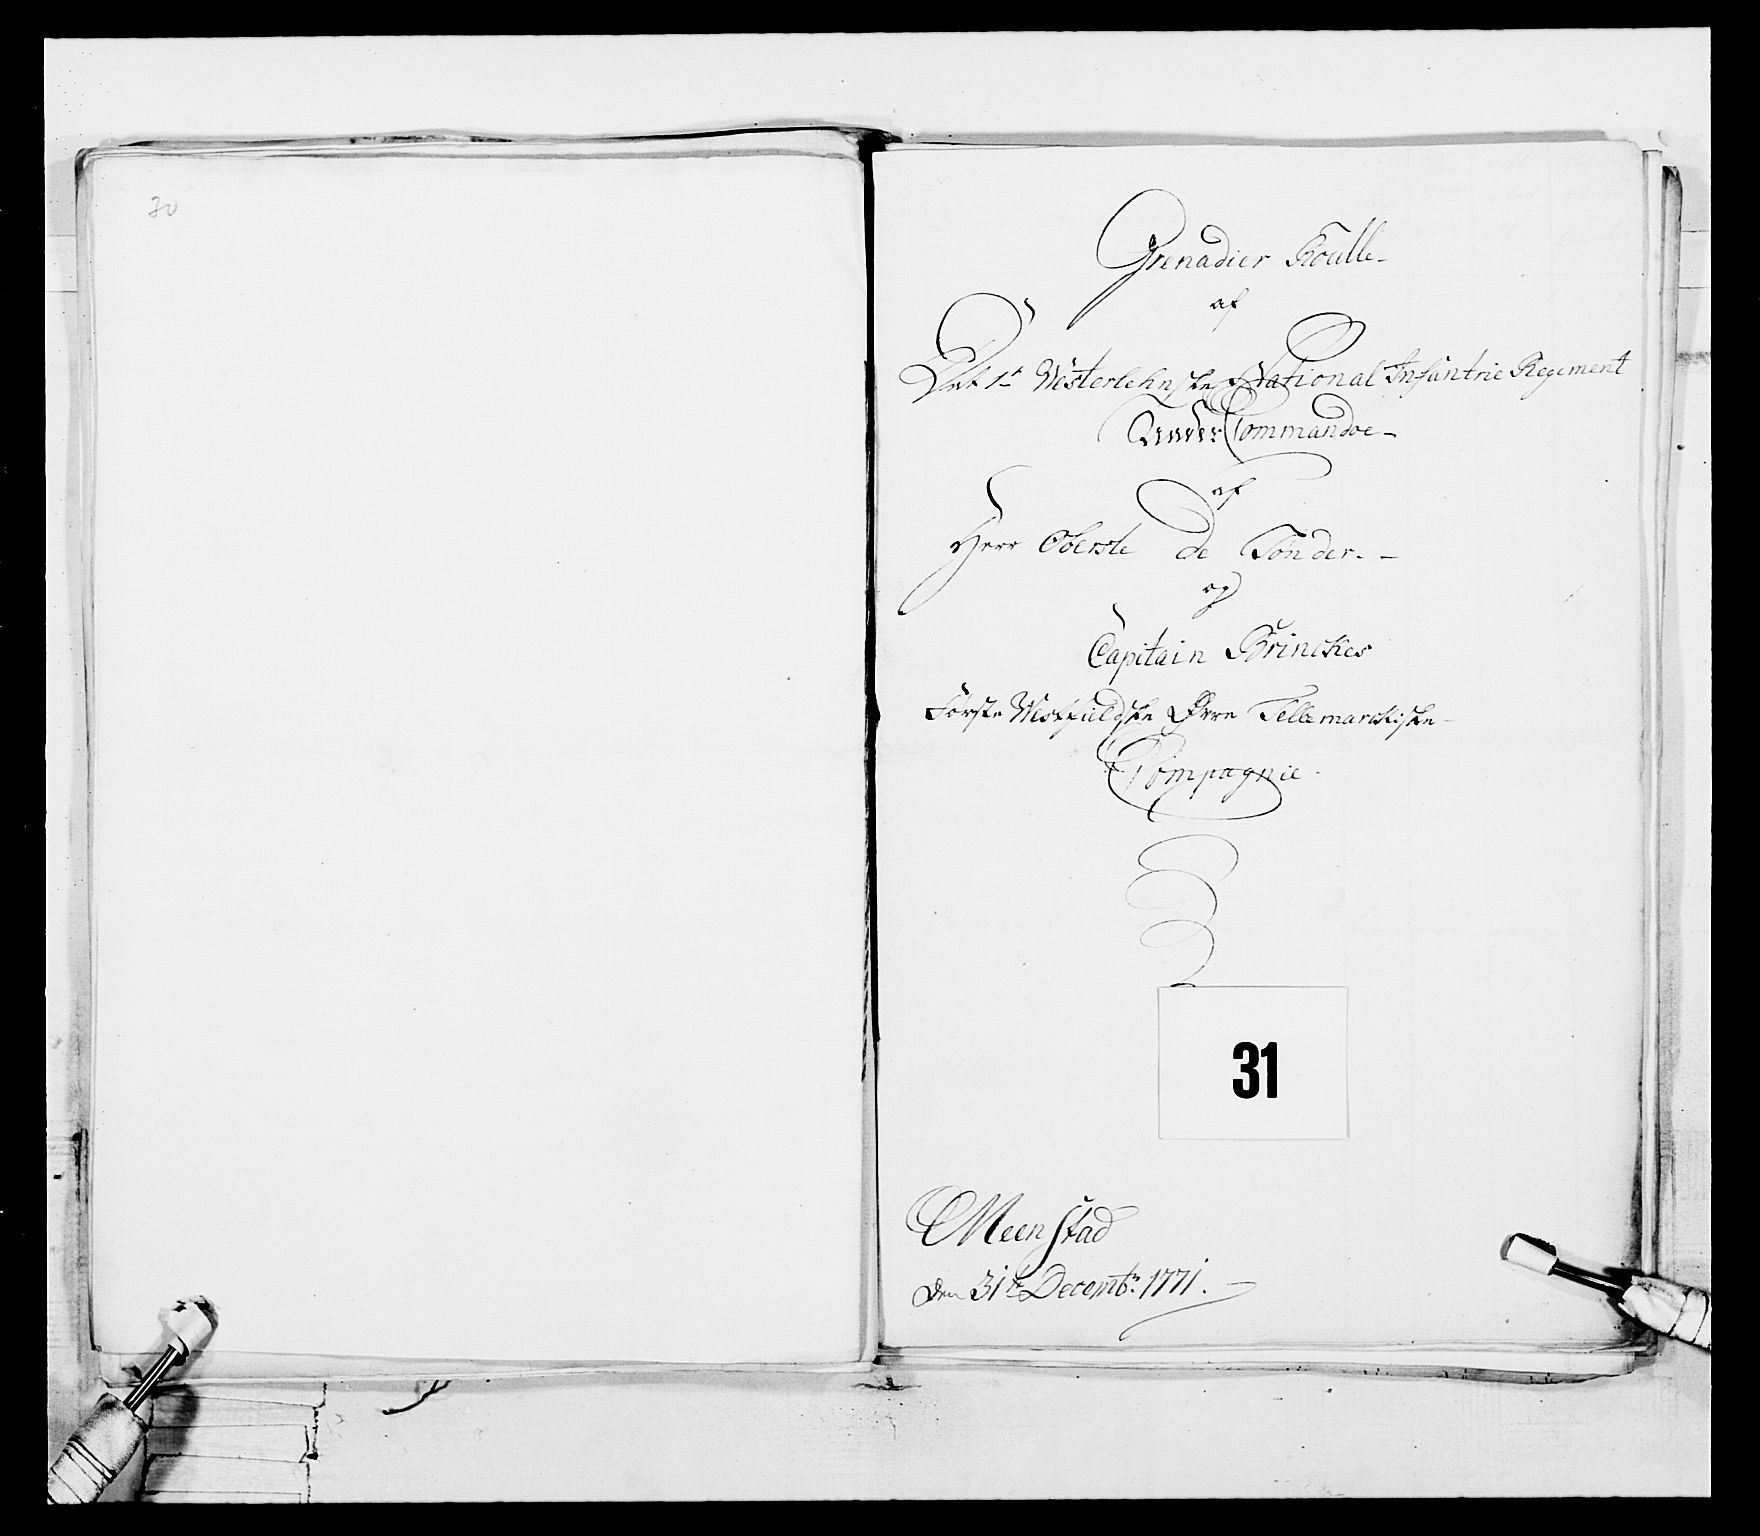 30
Grenadier Roulle
af
Det 1te Westerlehnske National Infanterie Regiment
Under Commandoe
af
Herr Oberste de Tønder
og
Capitain Brinckes
Første Westfieldske Øvre Tellemarckiske
Compagnie
31
Meenstad
den 31te Decembr: 1771.